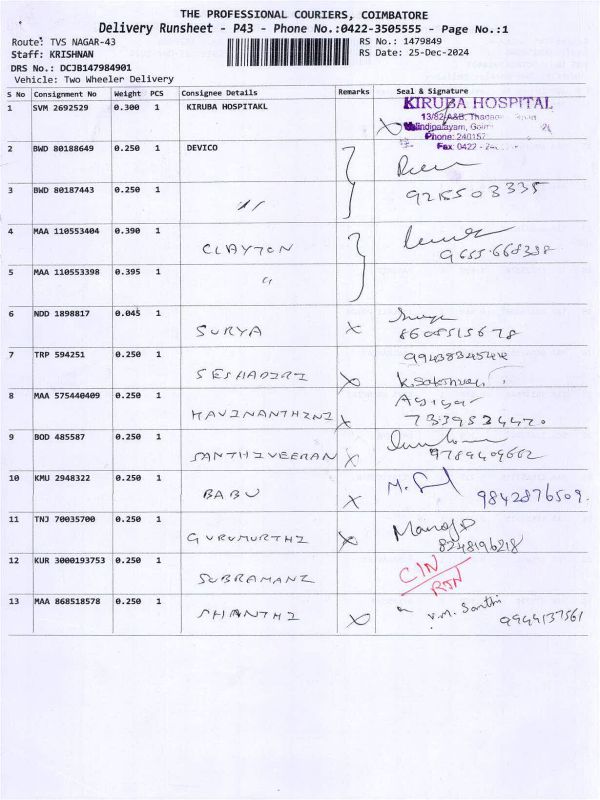 THE PROFESSIONAL COURIERS, COIMBATORE
Delivery Runsheet - P43 - Phone No.:0422-3505555 - Page No.:1
Route: TVS NAGAR-43 RS No.: 1479849
Staff: KRISHNAN RS Date: 25-Dec-2024
DRS No.: DCJB147984901
Vehicle: Two Wheeler Delivery
S No Consignment No Weight PCS Consignee Details Remarks Seal & Signature
1 SVM 2692529 0.300 1 KIRUBA HOSPITAKL KIRUBA HOSPITAL
13/82-A&B,
Phone: 240157
Fax: 0422 - 24
2 BWD 80188649 0.250 1 DEVICO
3 BWD 80187443 0.250 1 〃 9215503335
4 MAA 110553404 0.390 1 CLAYTON 9655668338
5 MAA 110553398 0.395 1 〃
6 NDD 1898817 0.045 1 SURYA X Surya
8608515678
7 TRP 594251 0.250 1 SESHADIRI X
8 MAA 575440409 0.250 1 KAVINANTHINI X
9 BOD 485587 0.250 1 SANTHIVEERAN X 9789409662
10 KMU 2948322 0.250 1 BABU X 9842876509.
11 TNJ 70035700 0.250 1 GURUMURTHI X Manoj
8248196218
12 KUR 3000193753 0.250 1 SUBRAMANI CIN
RTN
13 MAA 868518578 0.250 1 SHANTHI X V.M. Santhi 9944137561